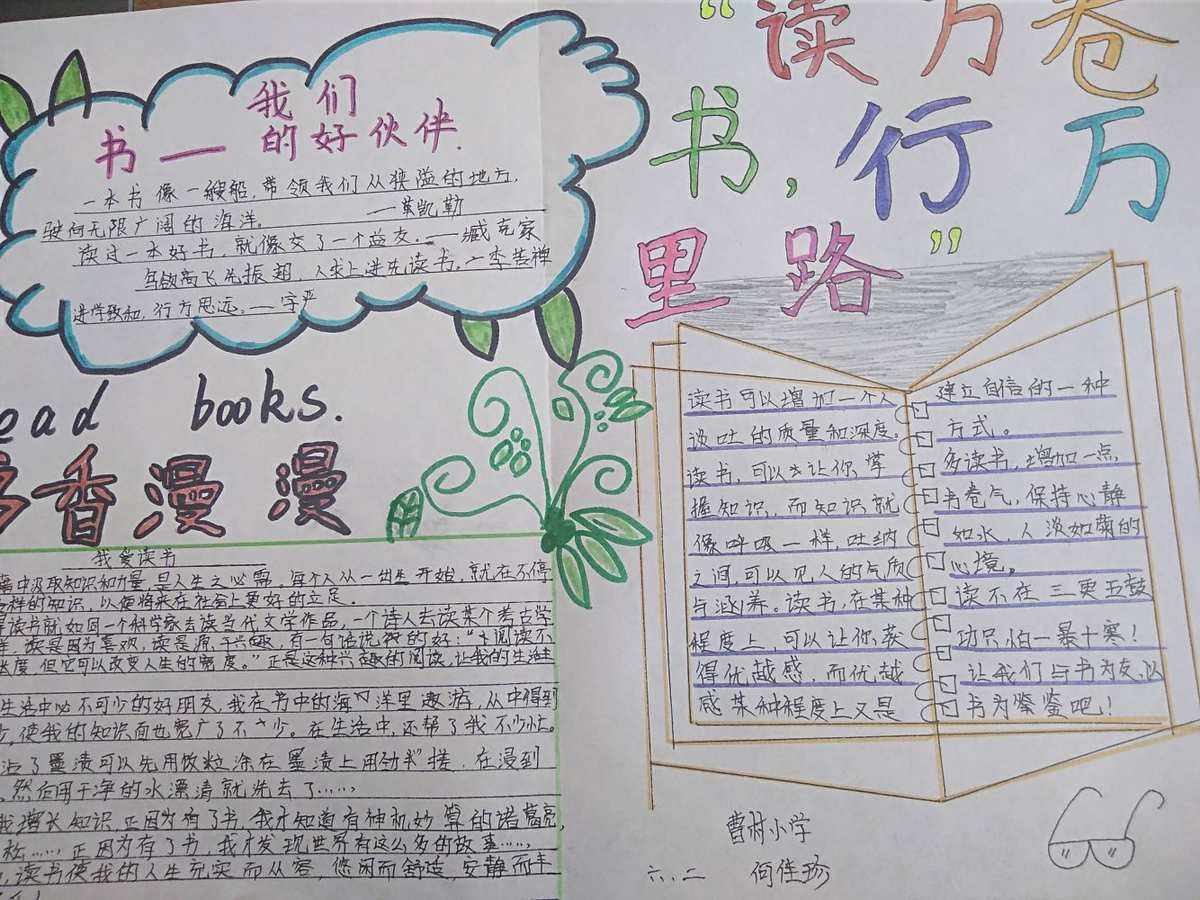 我们
书——的好伙伴.
一本书像一艘船,带领我们从狭隘的地方,
驶向无限广阔的海洋。 ——英凯勒
读过一本好书,就像交了一个益友。——臧克家
鸟欲高飞先振翅,人求上进先读书。——李苦禅
进学致和,行方思远。——字严
ead books.
香漫漫
我爱读书
中汲取知识和力量,是人生之必需,每个人从一出生开始,就在不停
样的知识,以便将来在社会上更好的立足。
读书就如同一个科学家去读当代文学作品,一个诗人去读某个考古学
读是因为喜欢,读是源于兴趣,有一句话说得的好:“阅读不
长度,但它可以改变人生的宽度。”正是这种兴趣的阅读,让我的生活
生活中必不可少的好朋友,我在书中的海洋里遨游,从中得到
,使我的知识面也宽广了不少。在生活中,还帮了我不少忙。
沾了墨渍可以先用饭粒涂在墨渍上用劲搓,在浸到
,然后用干净的水漂清就洗去了……
我增长知识,正因为有了书,我才知道有神机妙算的诸葛亮,
松……正因为有了书,我才发现世界有这么多的故事……
,读书使我的人生充实而从容,悠闲而舒适,安静而丰
“读万卷
书,行万
里路”
读书可以增加一个人
谈吐的质量和深度。
读书,可以让你掌
握知识,而知识就
像呼吸一样,吐纳
之间,可以见人的气质
与涵养。读书,在某种
程度上,可以让你获
得优越感,而优越
感某种程度上又是
建立自信的一种
方式。
多读书,增加一点
书卷气,保持心静
如水,人淡如菊的
心境。
读不在三更五鼓
功只怕一暴十寒!
让我们与书为友,以
书为鉴吧!
曹村小学
六.二 何佳珍